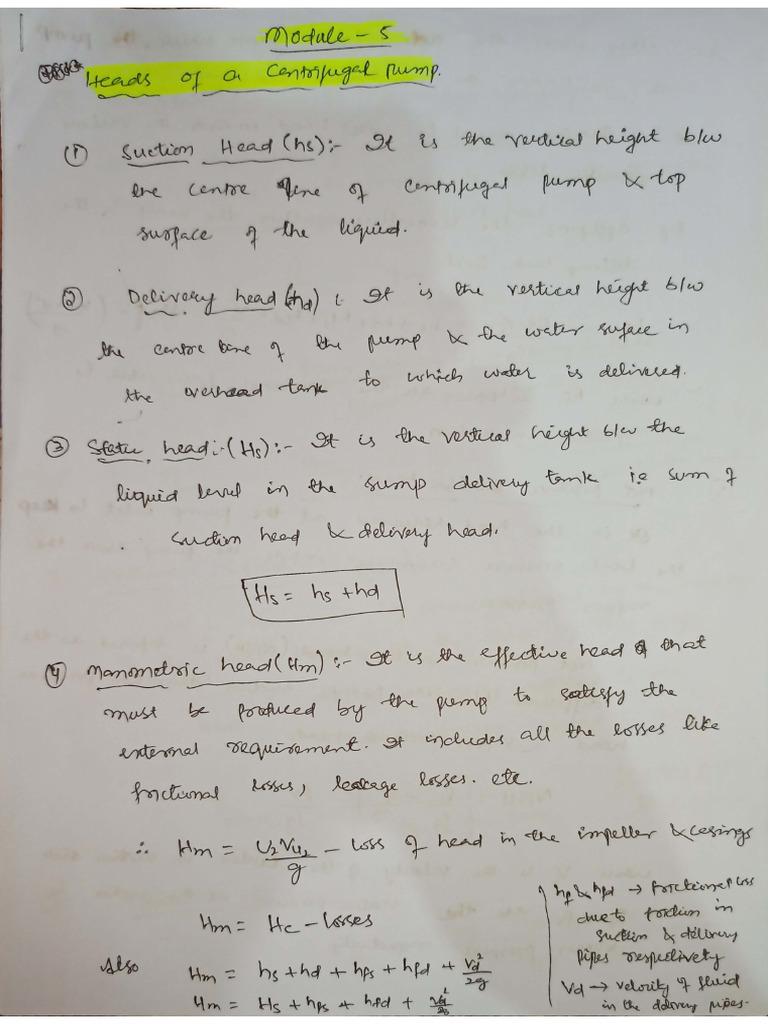 Module - 5
Heads of a Centrifugal Pump.
① Suction Head (hs) :- It is the vertical height b/w
the centre line of centrifugal pump & top
surface of the liquid.
② Delivery head (hd) : It is the vertical height b/w
the centre line of the pump & the water suface in
the overhead tank to which water is delivered.
③ Static head :- (Hs) :- It is the vertical height b/w the
liquid level in the sump delivery tank i.e sum of
suction head & delivery head.
Hs = hs + hd
④ Manometric head (Hm) :- It is the effective head that
must be produced by the pump to satisfy the
external requirement. It includes all the losses like
frictional losses, leakage losses. etc.
∴ Hm = U₂Vu₂/g - Loss of head in the impeller & casings
Hm = Hc - losses
Also Hm = hs + hd + hfs + hfd + Vd²/2g
Hm = Hs + hfs + hfd + Vd²/2g
hf & hfd → Frictional loss
due to friction in
suction & delivery
pipes respectively
Vd → velocity of fluid
in the delivery pipes.